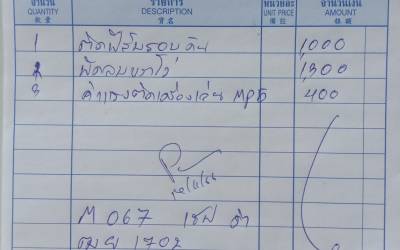 จำนวน รายการ หน่วยละ จำนวนเงิน
QUANTITY DESCRIPTION UNIT PRICE AMOUNT
數量 貨名 價目 銀碼
1 ติดฟิล์มรอบคัน 1,000
2 พัดลมขาโว่ 1,300
3 ค่าแรงติดเครื่องเล่น MP5 400
M 067 เชฟ ดำ
1702